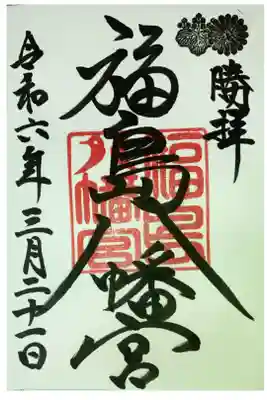 勝拝
福島八幡宮
福島八幡宮
令和六年三月二十一日